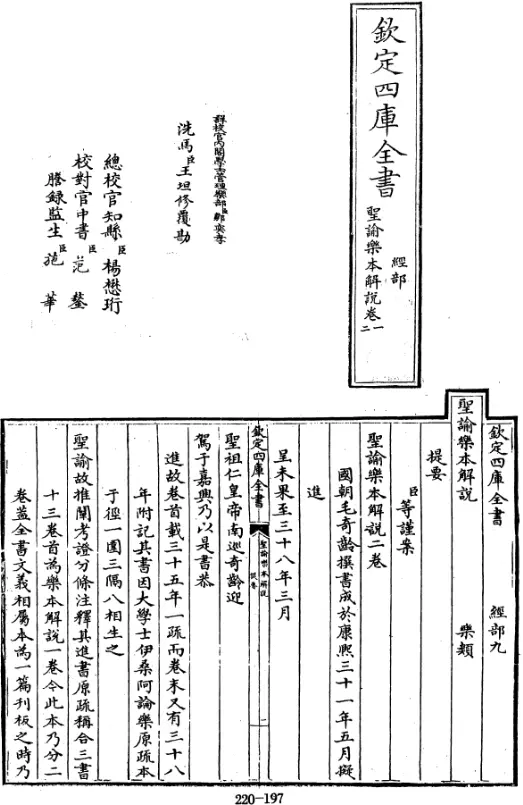 欽定四庫全書
經部
聖諭樂本解說卷一
二
詳校官內閣學士管理樂部臣鄒奕孝
洗馬臣王坦修覆勘
總校官知縣臣楊懋珩
校對官中書臣范鏊
謄錄監生臣范華
欽定四庫全書　經部九
聖諭樂本解說　樂類
提要
臣等謹案
聖諭樂本解說二卷
國朝毛奇齡撰書成於康熙三十一年五月擬
進
呈未果至三十八年三月
欽定四庫全書
聖諭樂本解說
提要
一
聖祖仁皇帝南巡奇齡迎
駕于嘉興乃以是書恭
進故卷首載三十五年一疏而卷末又有三十八
年附記其書因大學士伊桑阿論樂原疏本
于徑一圍三隔八相生之
聖諭故推闡考證分條注釋其進書原疏稱合三書
十三卷首為樂本解說一卷今此本乃分二
卷蓋全書文義相屬本為一篇刊板之時乃
220-197